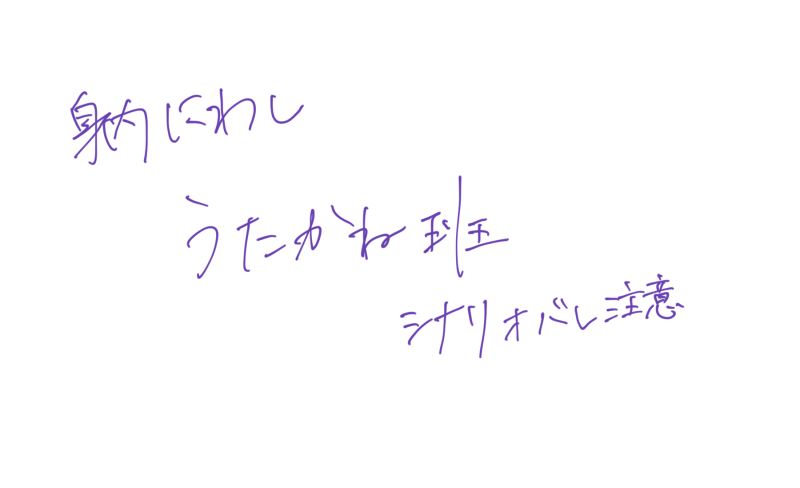 身内にわし
うたかね班
シナリオバレ注意